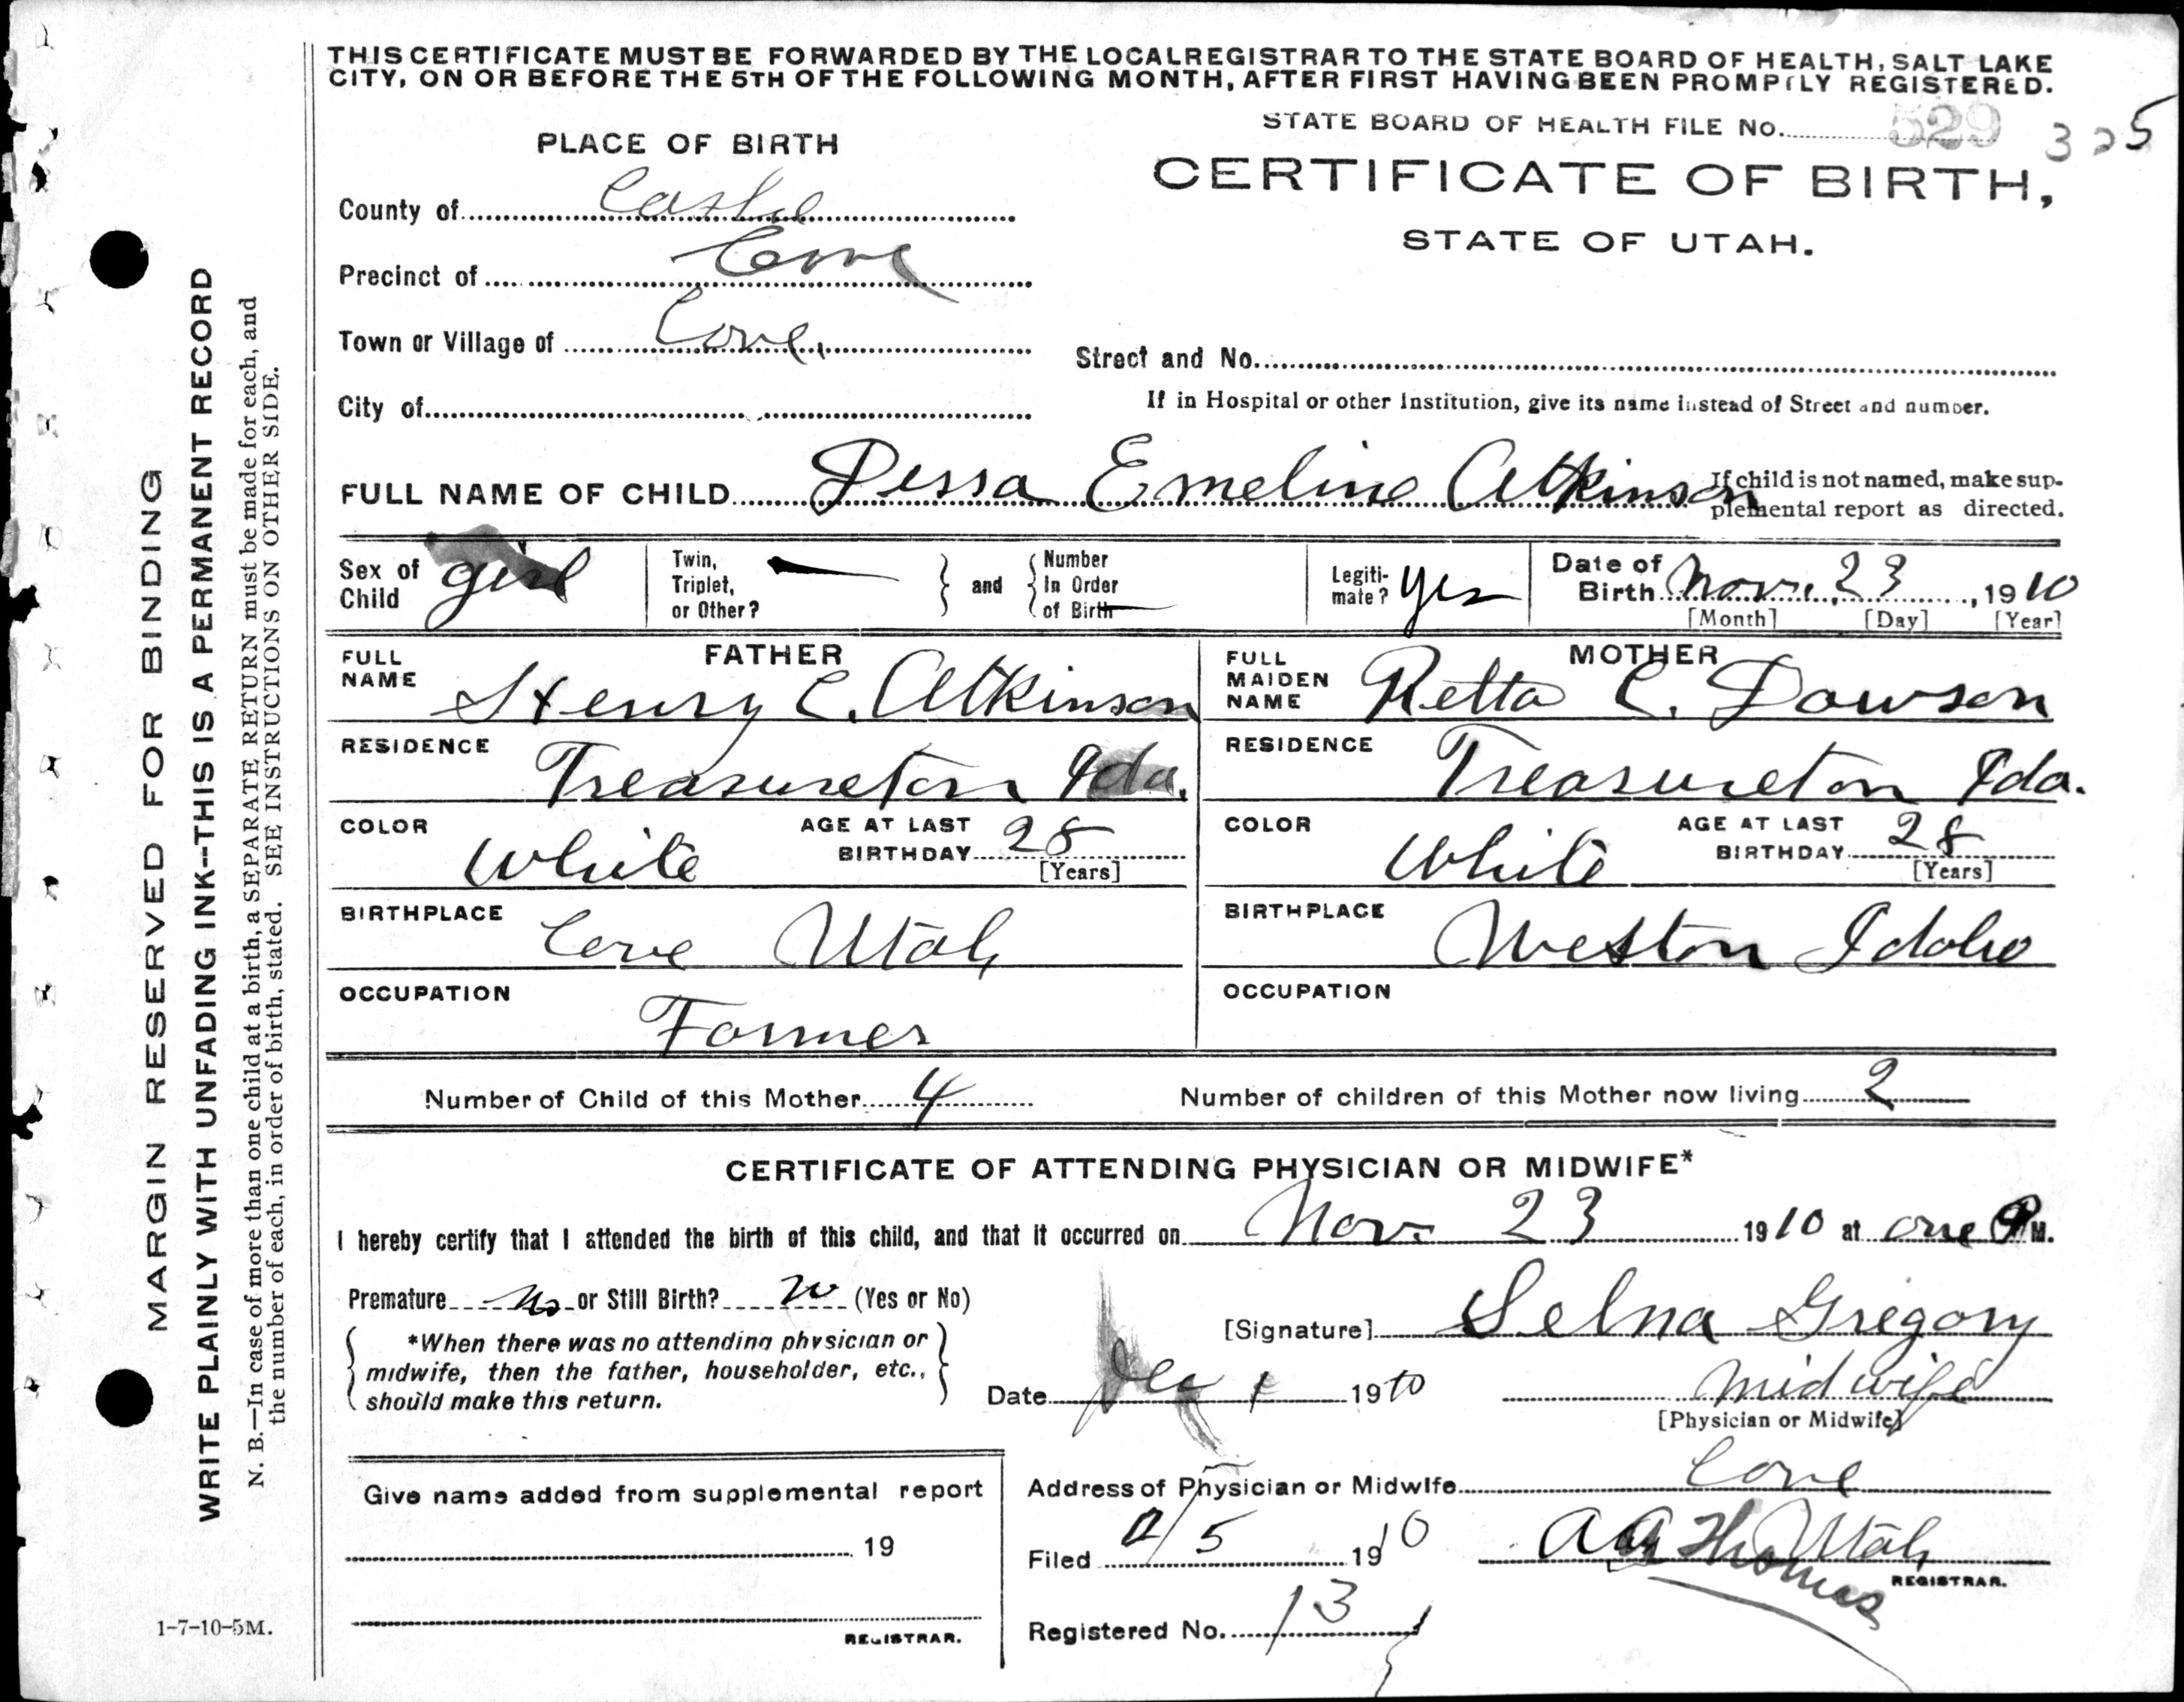 THIS CERTIFICATE MUST BE FORWARDED BY THE LOCAL REGISTRAR TO THE STATE BOARD OF HEALTH, SALT LAKE
CITY, ON OR BEFORE THE 5TH OF THE FOLLOWING MONTH, AFTER FIRST HAVING BEEN PROMPTLY REGISTERED.
STATE BOARD OF HEALTH FILE No. 529 325
PLACE OF BIRTH
CERTIFICATE OF BIRTH,
STATE OF UTAH.
County of
Precinct of Cove
Town or Village of Cove,
Street and No.
City of
If in Hospital or other Institution, give its name instead of Street and number.
FULL NAME OF CHILD Dessa Emeline Atkinson
If child is not named, make sup-
plemental report as directed.
Sex of Child girl
Twin, Triplet, or Other? —
and
Number In Order of Birth —
Legiti-mate? Yes
Date of Birth Nov. 23, 1910
[Month] [Day] [Year]
FATHER
FULL NAME Henry C. Atkinson
MOTHER
FULL MAIDEN NAME Retta C. Dawson
RESIDENCE Treasureton Ida.
RESIDENCE Treasureton Ida.
COLOR White
AGE AT LAST BIRTHDAY 28
[Years]
COLOR White
AGE AT LAST BIRTHDAY 28
[Years]
BIRTHPLACE Cove Utah
BIRTHPLACE Weston Idaho
OCCUPATION Farmer
OCCUPATION
Number of Child of this Mother 4
Number of children of this Mother now living 2
CERTIFICATE OF ATTENDING PHYSICIAN OR MIDWIFE*
I hereby certify that I attended the birth of this child, and that it occurred on Nov. 23 1910 at one P M.
Premature No or Still Birth? no (Yes or No)
*When there was no attending physician or
midwife, then the father, householder, etc.,
should make this return.
[Signature] Selna Gregory
Date Dec 1 1910
midwife
[Physician or Midwife]
Give name added from supplemental report
19
REGISTRAR.
Address of Physician or Midwife Cove
Utah
Filed 5 1910
Thomas
REGISTRAR.
Registered No. 13
1-7-10-5M.
MARGIN RESERVED FOR BINDING
WRITE PLAINLY WITH UNFADING INK--THIS IS A PERMANENT RECORD
N. B.—In case of more than one child at a birth, a SEPARATE RETURN must be made for each, and
the number of each, in order of birth, stated. SEE INSTRUCTIONS ON OTHER SIDE.